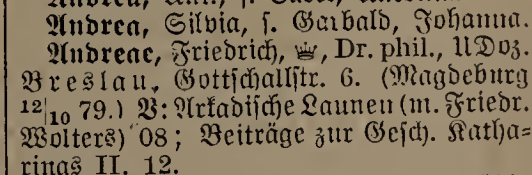 Andrea, Silvia, s. Garbald, Johanna.
Andreae, Friedrich, ♛, Dr. phil., UDoz.
Breslau, Gottschallstr. 6. (Magdeburg
12|10 79.) B: Arkadische Launen (m. Friedr.
Wolters) 08; Beiträge zur Gesch. Katha=
rinas II. 12.